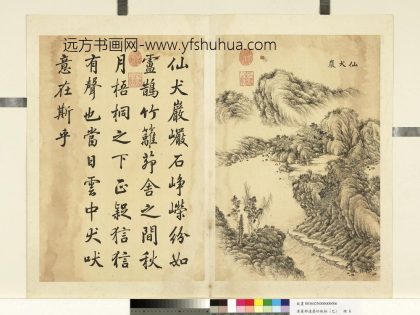 远方书画网-www.yfshuhua.com
仙犬巖
仙犬巖巖石崢嶸紛如
盧鵲竹籬茆舍之間秋
月梧桐之下正疑狺狺
有聲也當日雲中犬吠
意在斯乎